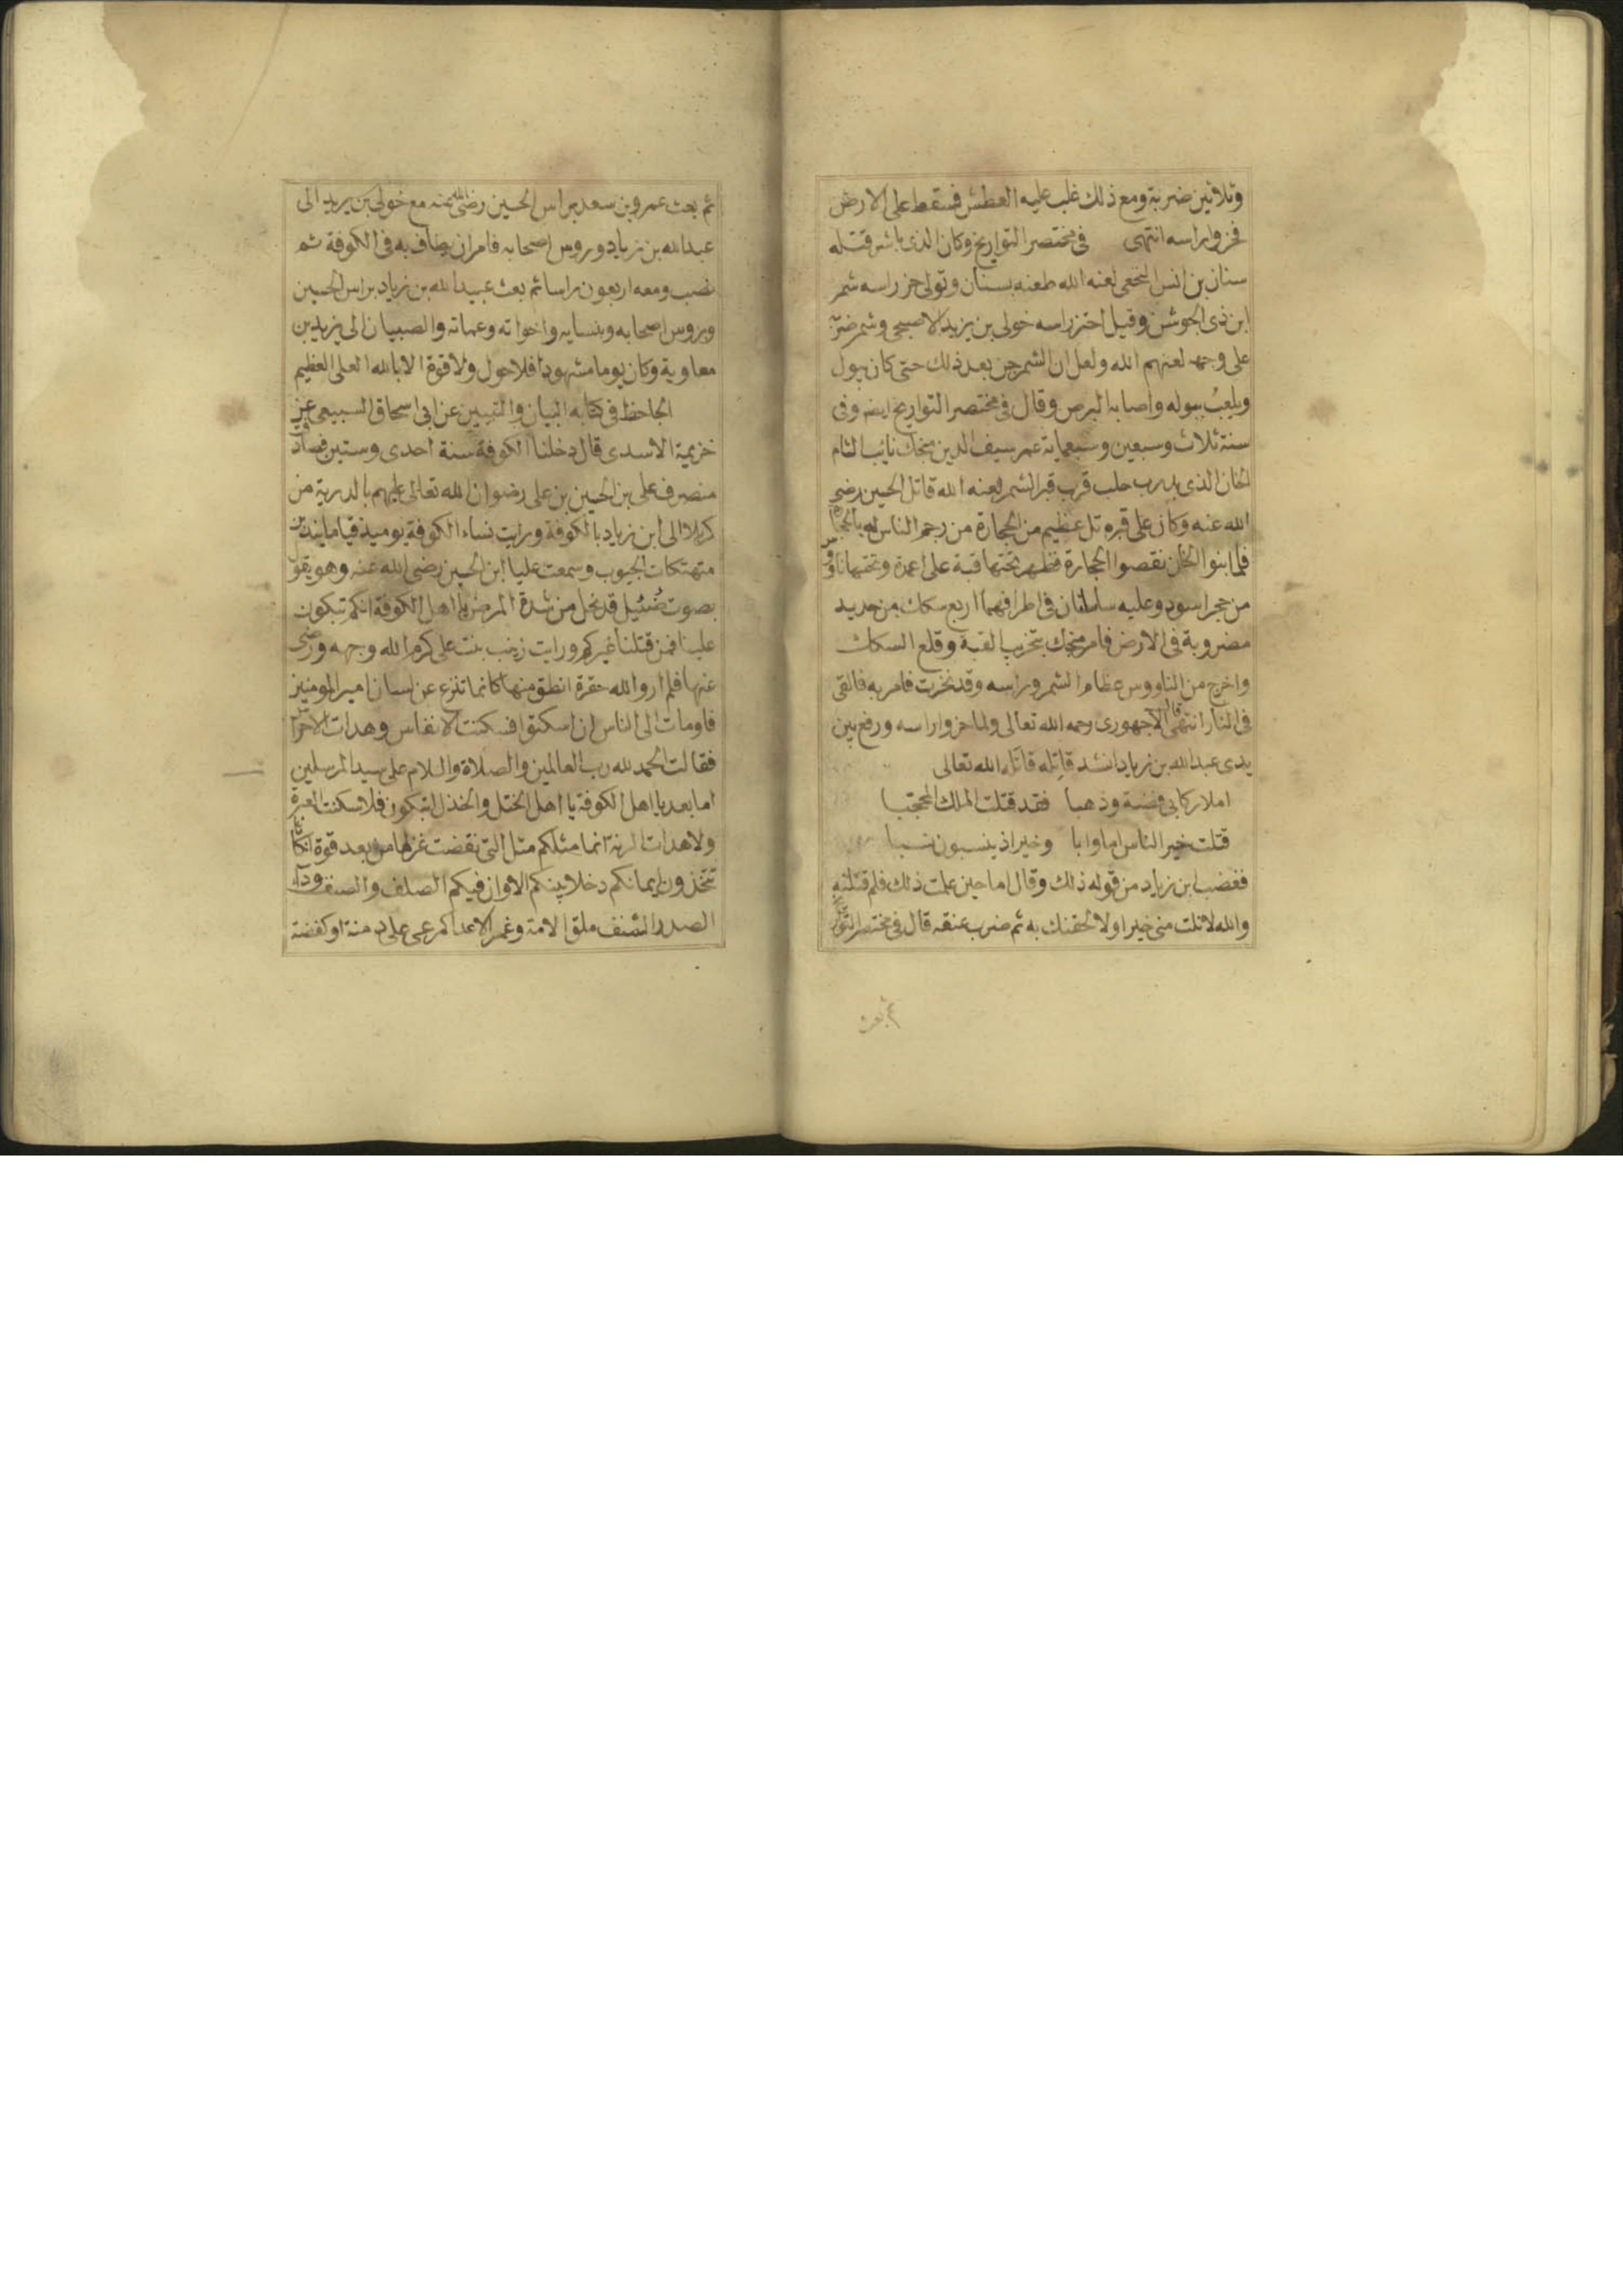 وثلاثين ضربة ومع ذلك غلب عليه العطش فسقط على الارض
فحزوا راسه انتهى في مختصر التواريخ وكان الذي باشر قتله
سنان بن انس النخعي لعنه الله طعنه بسنان وتولى حز راسه شمر
ابن ذي الجوشن وقيل احتز راسه خولي بن يزيد الاصبحي وشمر ضربه
على وجهه لعنهم الله ولعل ان الشمر جن بعد ذلك حتى كان يبول
ويلعب ببوله واصابه البرص وقال في مختصر التواريخ ايضه وفي
سنة ثلاث وسبعين وسبعماية عمر سيف الدين منجك نائب الشام
الخان الذي بدرب حلب قرب قبر الشمر لعنه الله قاتل الحسين رضي
الله عنه وكان على قبره تل عظيم من الحجارة من رجم الناس له بالحجارة
فلما بنوا الخان نقصوا الحجارة فظهر تحتها قبة على اعمدة وتحتها ناووس
من حجر اسود وعليه سلطانان في اطرافهما اربع سكك من حديد
مضروبة في الارض فامر منجك بتخريب القبة وقلع السكك
واخرج من الناووس عظام الشمر وراسه وقد نخرت فامر به فالقي
في النار انتهى قال الاجهوري رحمه الله تعالى ولما حزوا راسه ورفع بين
يدي عبد الله بن زياد انشد قاتله قاتله الله تعالى
املا ركابي فضة وذهبا فقد قتلت الملك المحجبا
قتلت خير الناس اما وابا وخيرا اذ ينسبون نسبا
فغضب ابن زياد من قوله ذلك وقال اما حين علمت ذلك فلم قتلته
والله لا نلت مني خيرا ولالحقنك به ثم ضرب عنقه قال في مختصر التواريخ
ثم بعث
ثم بعث عمرو بن سعد براس الحسين رضي الله عنه مع خولي بن يزيد الى
عبد الله بن زياد وروس اصحابه فامر ان يطاف به في الكوفة ثم
نصب ومعه اربعون راسا ثم بعث عبيد الله بن زياد براس الحسين
وروس اصحابه وبنسايه واخواته وعماته والصبيان الى يزيد بن
معاوية وكان يوما مشهودا فلا حول ولا قوة الا بالله العلى العظيم
الجاحظ في كتابه البيان والتبيين عن ابي اسحاق السبيعي عن
خزيمة الاسدي قال دخلنا الكوفة سنة احدى وستين فصادفت
منصرف على بن الحسين بن على رضوان الله تعالى عليهم بالذرية من
كربلا الى ابن زياد بالكوفة ورايت نساء الكوفة يوميذ قياما يندبن
متهتكات الجيوب وسمعت عليا ابن الحسين رضي الله عنه وهو يقول
بصوت ضئيل قد نحل من شدة المرض يا اهل الكوفة انكم تبكون
علينا فمن قتلنا غيركم ورايت زينب بنت على كرم الله وجهه ورضي
عنها فلم ار والله حفرة انطق منها كانما تنزع عن لسان امير المومنين
فاومات الى الناس ان اسكتوا فسكنت الانفاس وهدات الاجراس
فقالت الحمد لله رب العالمين والصلاة والسلام على سيد المرسلين
اما بعد يا اهل الكوفة يا اهل الختل والخذل اتبكون فلا سكنت العبرة
ولا هدات الرنة انما مثلكم مثل التي نقضت غزلها من بعد قوة انكاثا
تتخذون ايمانكم دخلا بينكم الا وان فيكم الصلف والصنف وداء
الصدر الشنف ملق الامة وغمر الاعدا كمرعى على دمنة او كفضة